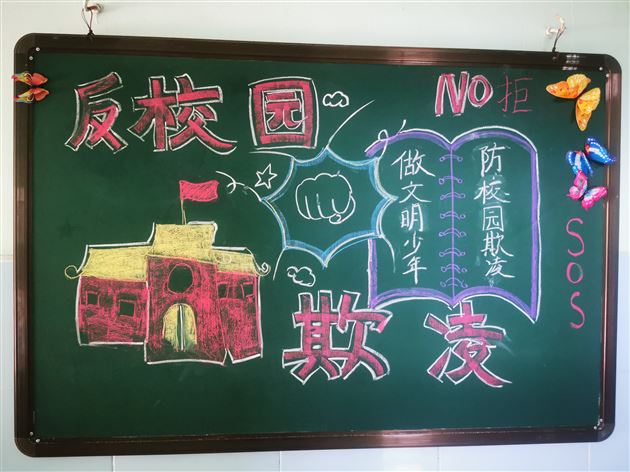 反校园
NO 拒
防校园欺凌
做文明少年
SOS
欺凌